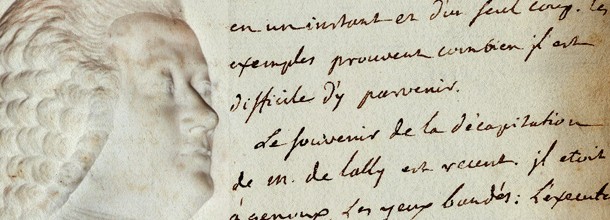 en un instant et d'un seul coup. les
exemples prouvent combien jl est
difficile d'y parvenir.
Le souvenir de la décapitation
de m. de lally est recent. jl etoit
à genoux, les yeux bandés; l'execut